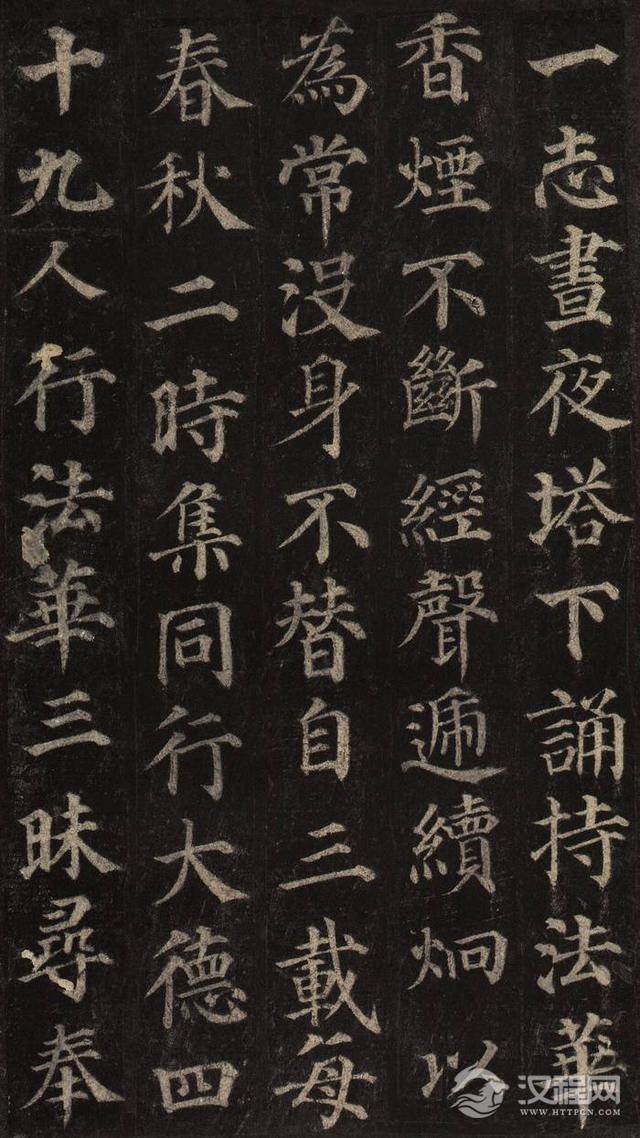 一志晝夜塔下誦持法華
香煙不斷經聲遞續炯以
為常没身不替自三載每
春秋二時集同行大德四
十九人行法華三昧尋奉
汉程网
WWW.HTTPCN.COM